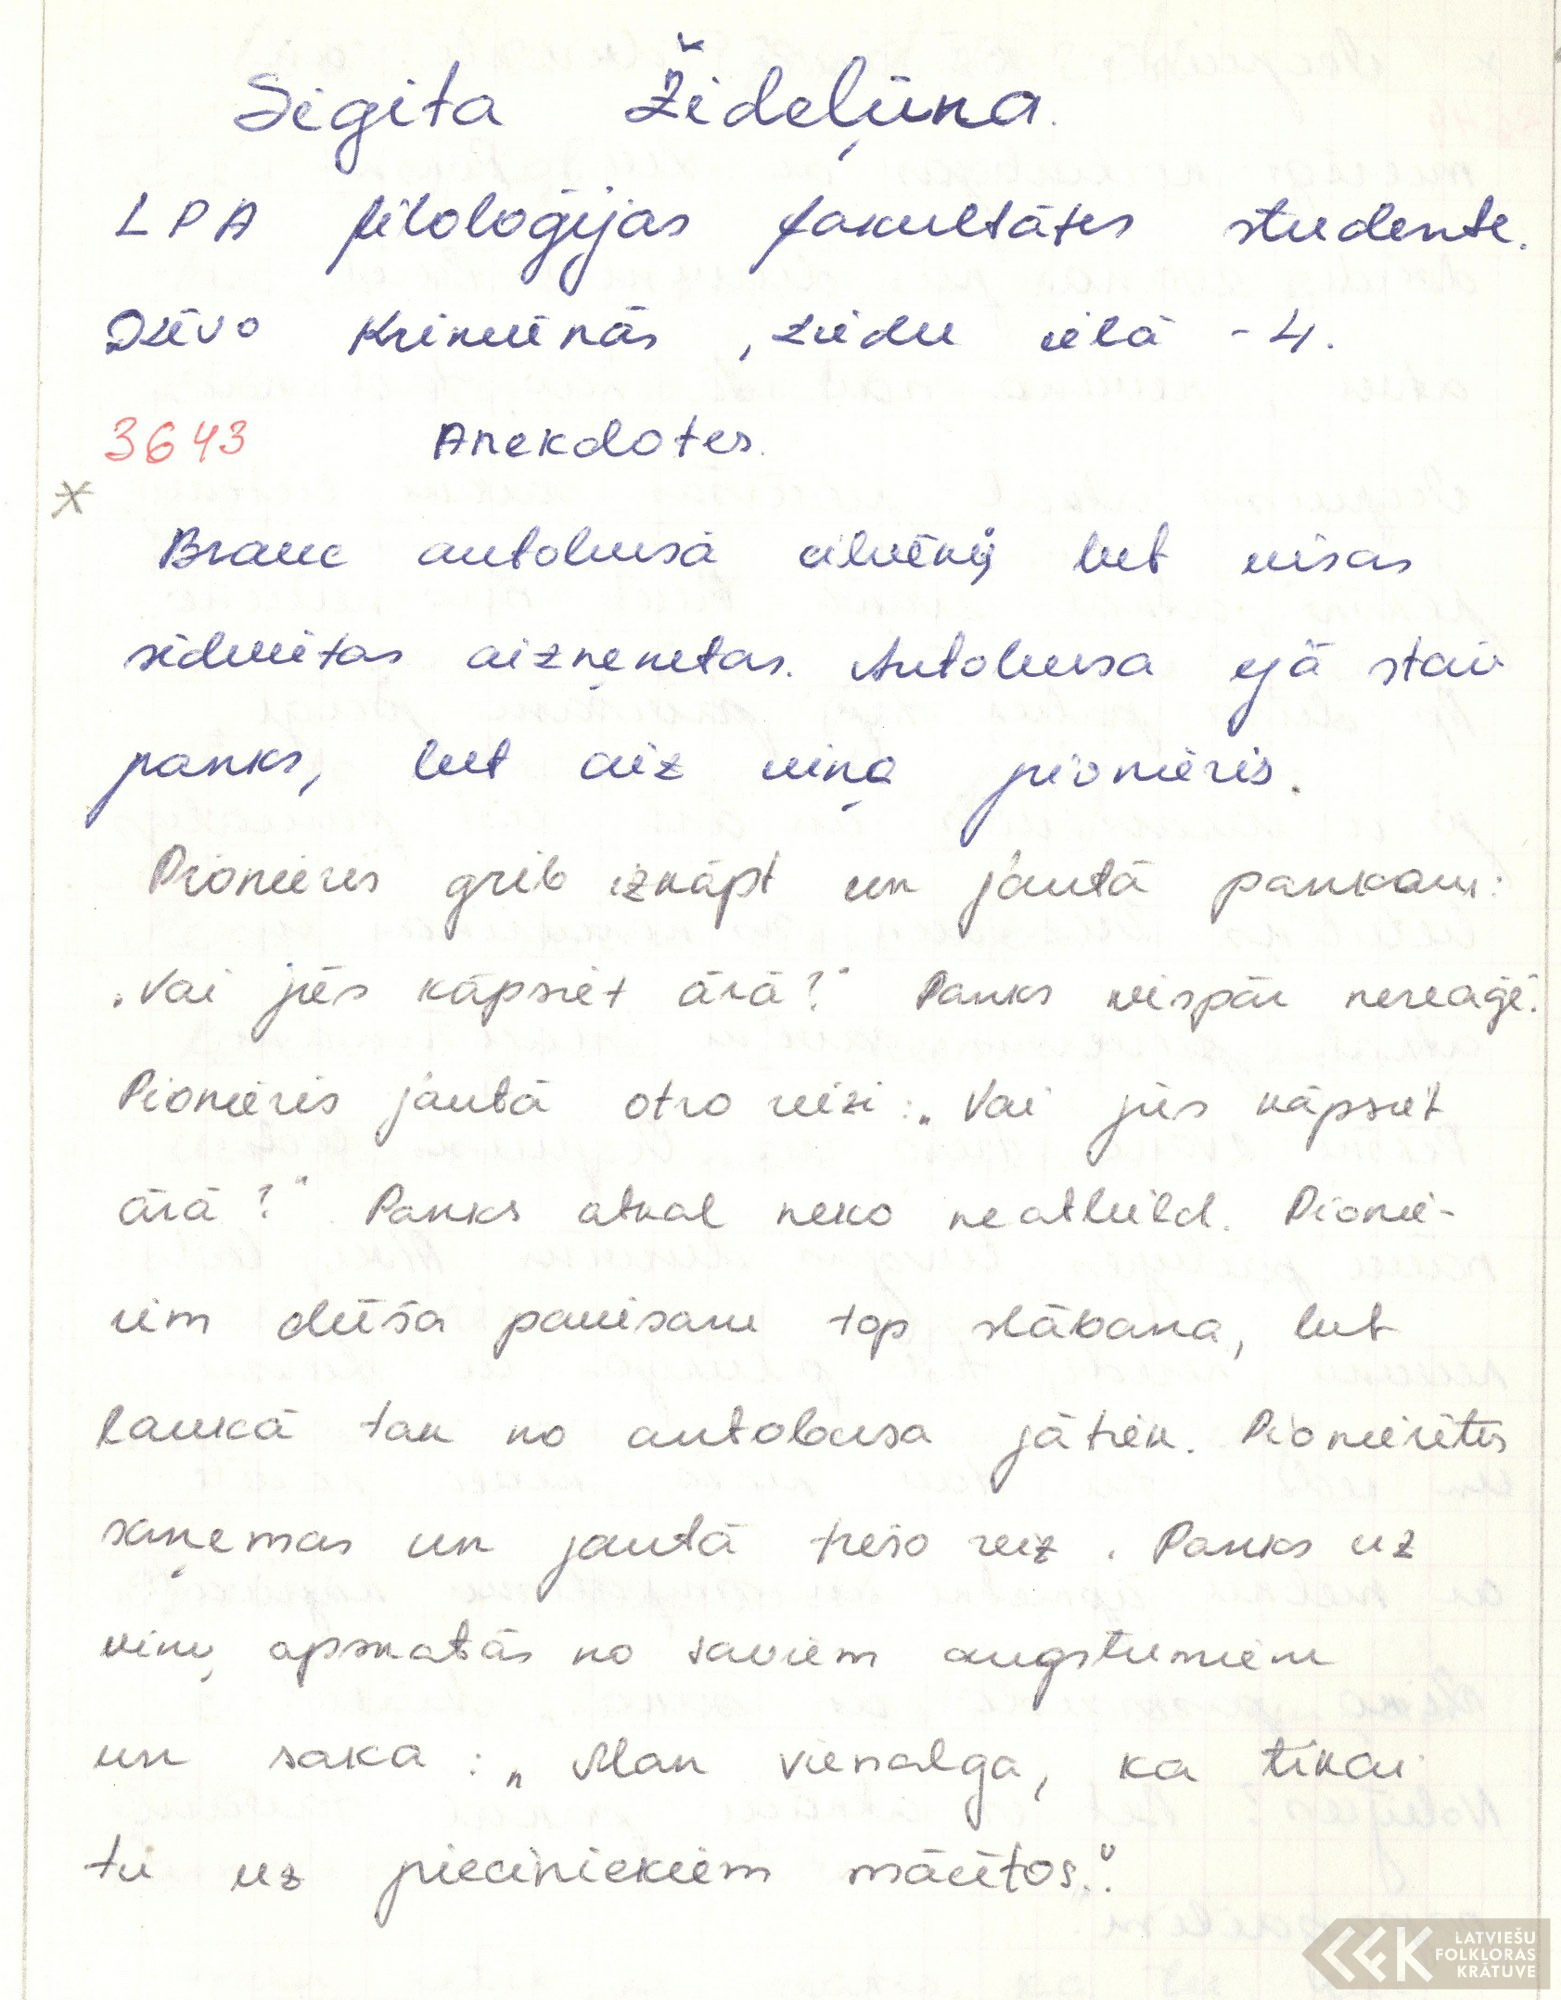 Sigita Žideļūna.
LPA filoloģijas fakultātes studente.
Dzīvo Krimūnās, Ziedu ielā - 4.
3643 Anekdotes.
*
Brauc autobusā cilvēki, bet visas
sēdvietas aizņemtas. Autobusa ejā stāv
panks, bet aiz viņa pionieris.
Pionieris grib izkāpt un jautā pankam:
"Vai jūs kāpsiet ārā?" Panks vispār nereaģē.
Pionieris jautā otro reizi: „Vai jūs kāpsiet
ārā?" Panks atkal neko neatbild. Pionie-
rim dūša pavisam top šļābana, bet
laukā tak no autobusa jātiek. Pionierītis
saņemas un jautā trešo reiz. Panks uz
viņu apskatās no saviem augstumiem
un saka: „Man vienalga, ka tikai
tu uz pieciniekiem mācītos.".
LATVIEŠU
FOLKLORAS
KRĀTUVE